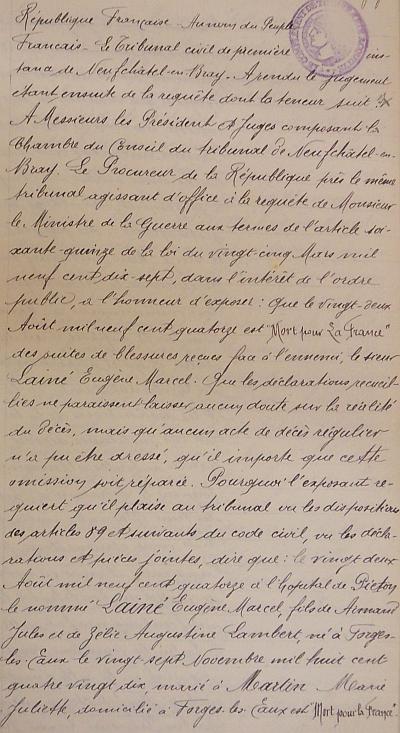 République Française - Au nom du Peuple
Français - Le Tribunal civil de première ins-
tance de Neufchâtel-en-Bray - A rendu le jugement
étant ensuite de la requête dont la teneur suit
A Messieurs les Président et Juges composant la
Chambre du Conseil du tribunal de Neufchâtel-en-
Bray. Le Procureur de la République près le même
tribunal agissant d'office à la requête de Monsieur
le Ministre de la Guerre aux termes de l'article soi-
xante-quinze de la loi du vingt-cinq Mars mil
neuf cent dix-sept, dans l'intérêt de l'ordre
public, a l'honneur d'exposer : Que le vingt-deux
Août mil neuf cent quatorze est "Mort pour La France"
des suites de blessures reçues face à l'ennemi, le sieur
Lainé Eugène Marcel. Que les déclarations recueil-
lies ne paraissent laisser aucun doute sur la réalité
du décès, mais qu'aucun acte de décès régulier
n'a pu être dressé, qu'il importe que cette
omission soit réparée. Pourquoi l'exposant re-
quiert qu'il plaise au tribunal vu les dispositions
des articles 89 et suivants du code civil, vu les décla-
rations et pièces jointes, dire que : le vingt deux
Août mil neuf cent quatorze à l'hopital de Piéton
le nommé Lainé Eugène Marcel, fils de Armand
Jules et de Zélie Augustine Lambert, né à Forges-
les-Eaux le vingt sept Novembre mil huit cent
quatre vingt dix, marié à Martin Marie
Juliette, domicilié à Forges-les-Eaux est "Mort pour la France"